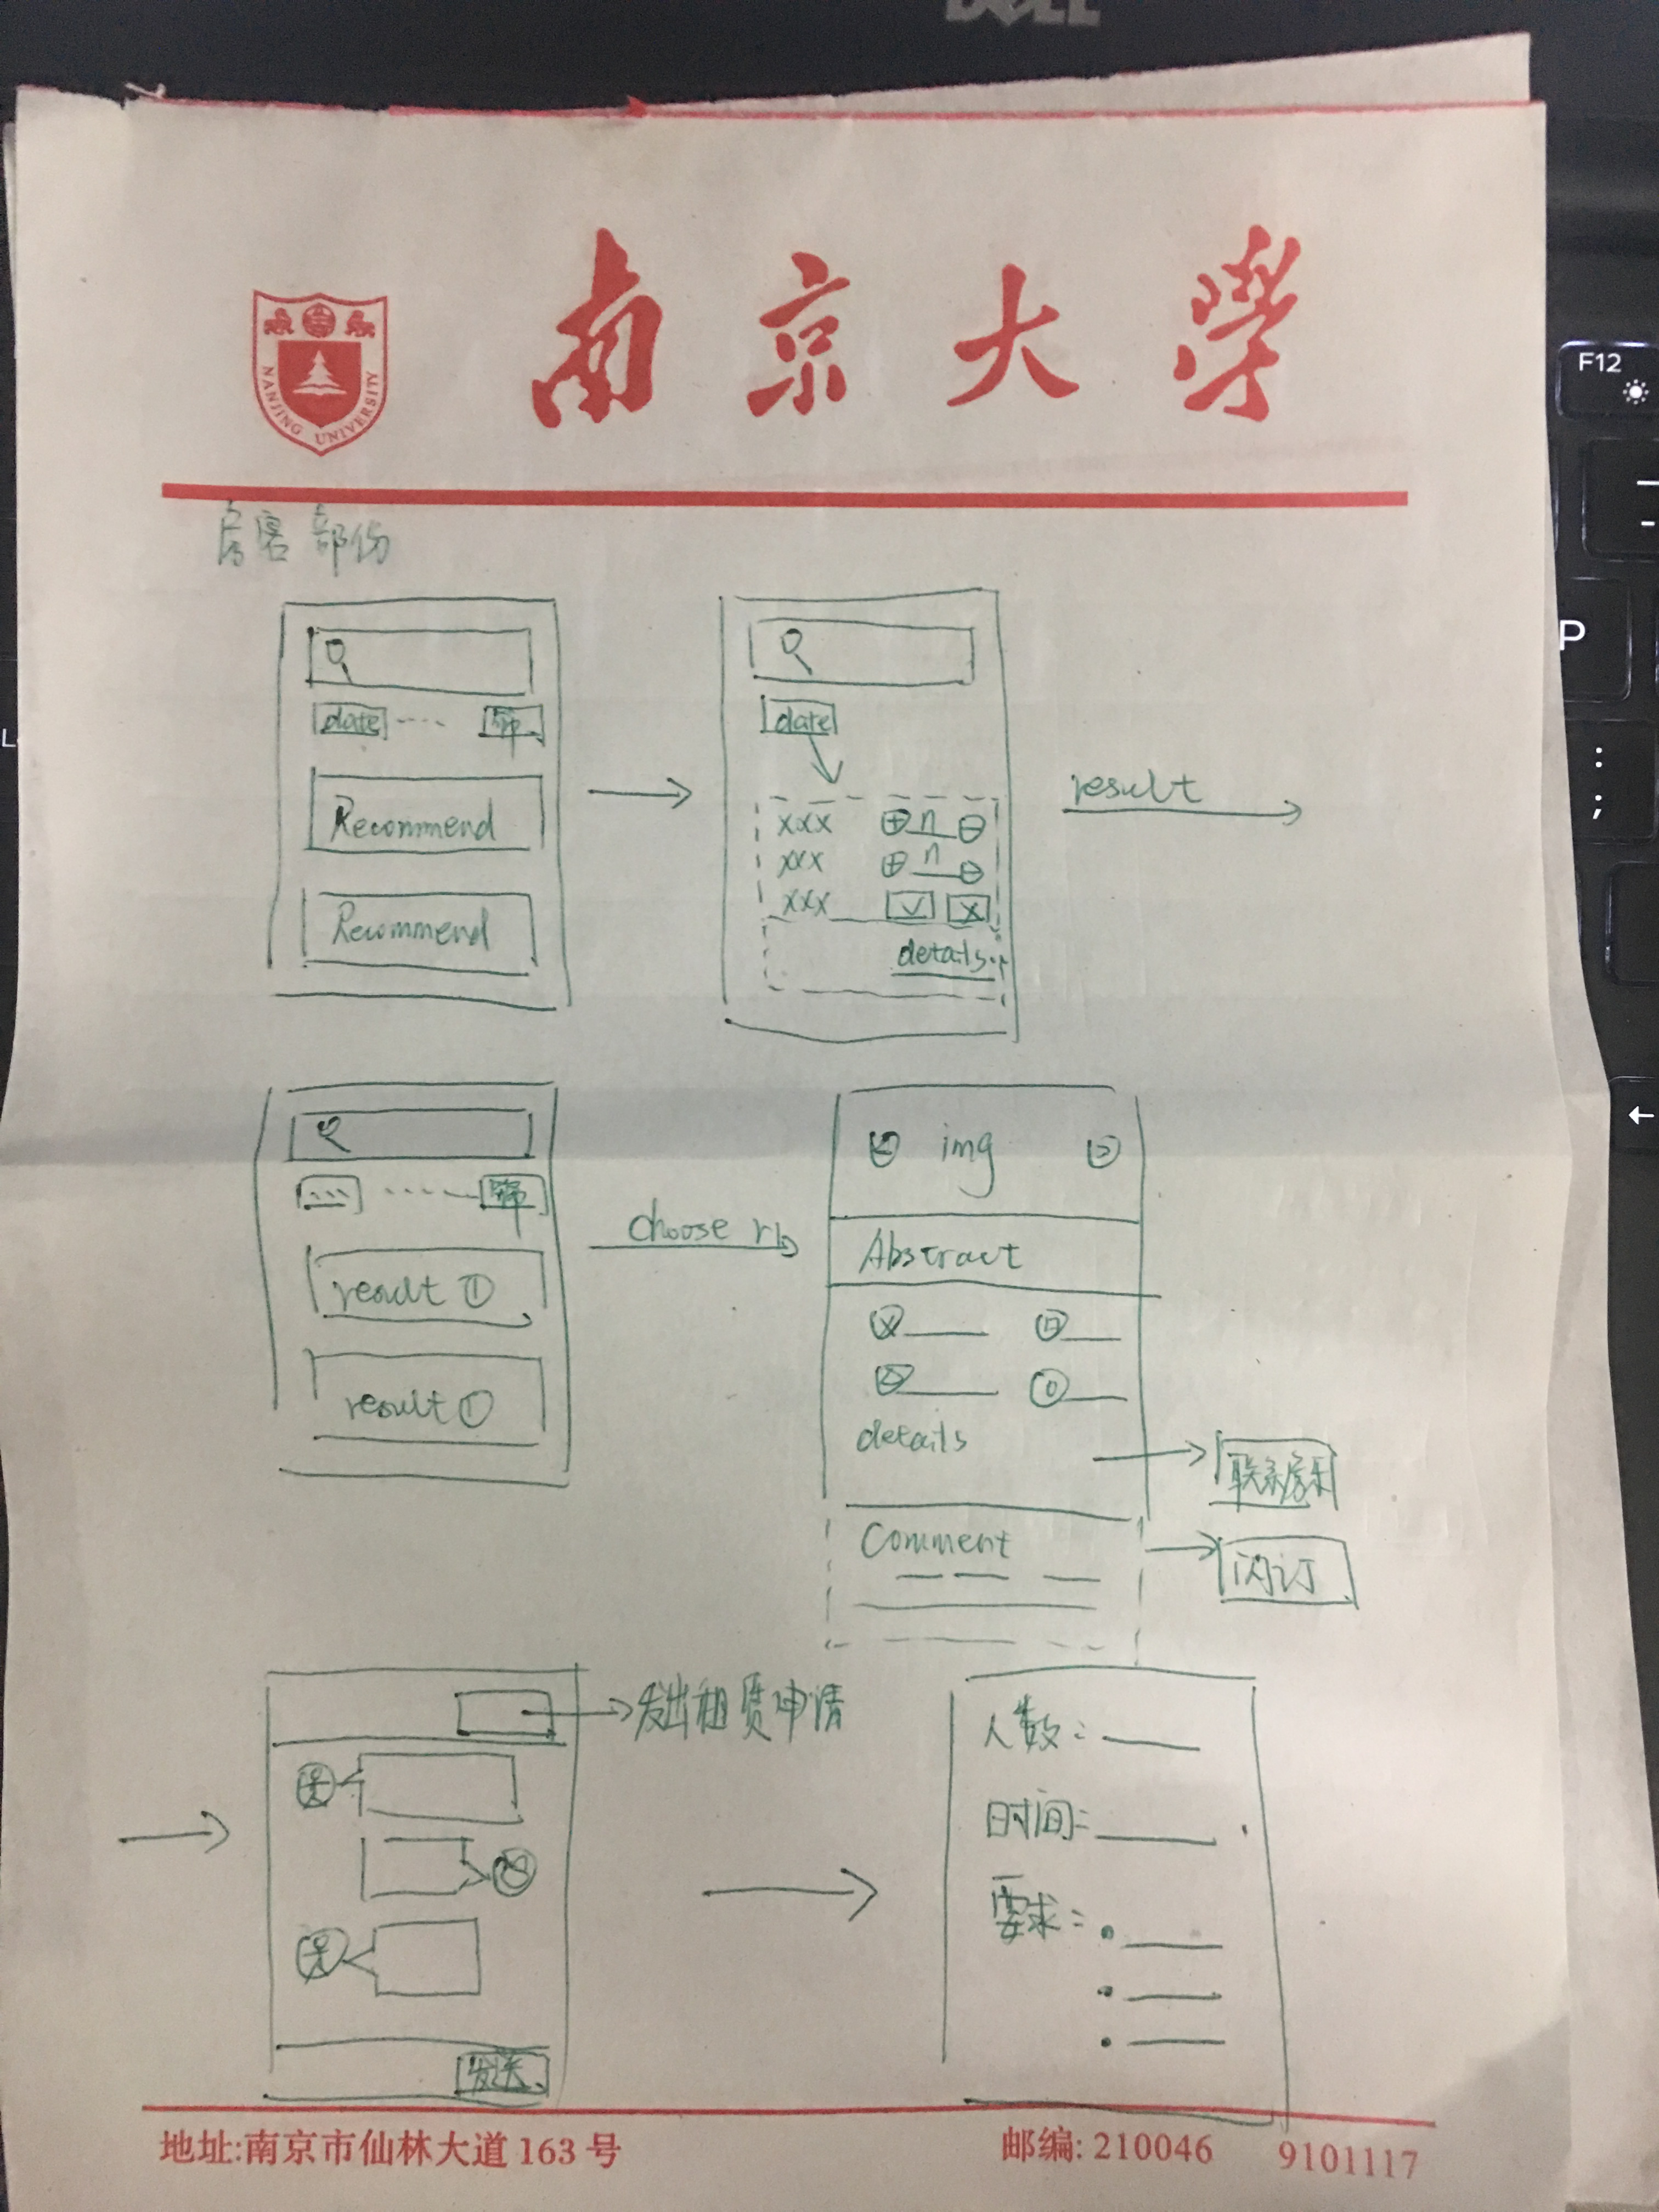 DELL
南京大学
NANJING UNIVERSITY
房客部份
date ---- 筛
Recommend
Recommend
date
xxx ⊕ n ⊖
xxx ⊕ n ⊖
xxx √ x
details
result
筛
result ①
result ①
choose r1
img
Abstract
details
联系房东
Comment
闪订
发出租赁申请
发送
人数:
时间:
要求:
地址:南京市仙林大道 163 号 邮编: 210046 9101117
F12
P
:
;
L